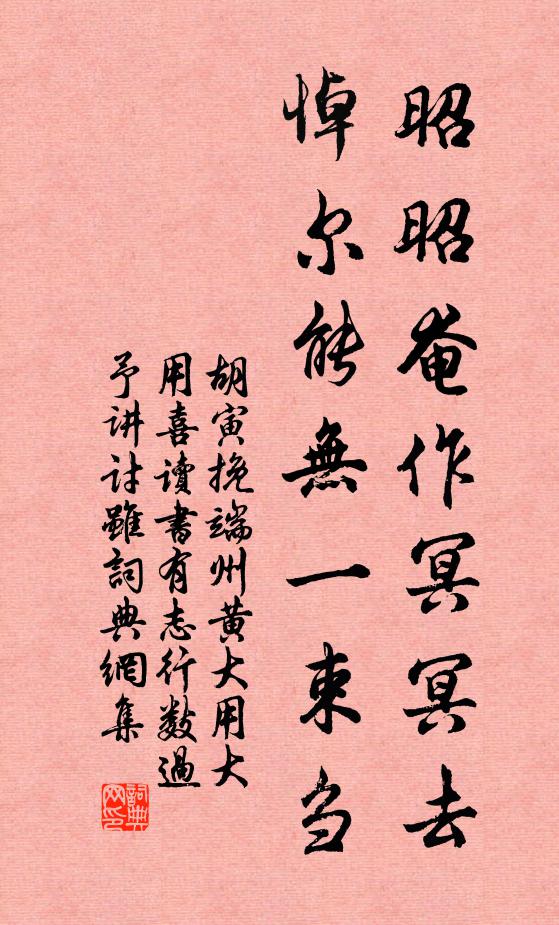 昭昭奄作冥冥去
悼尔能無一束刍
胡寅挽端州黄大用大
用喜讀書有志行數過
予讲討雖詞典網集
詞典网印